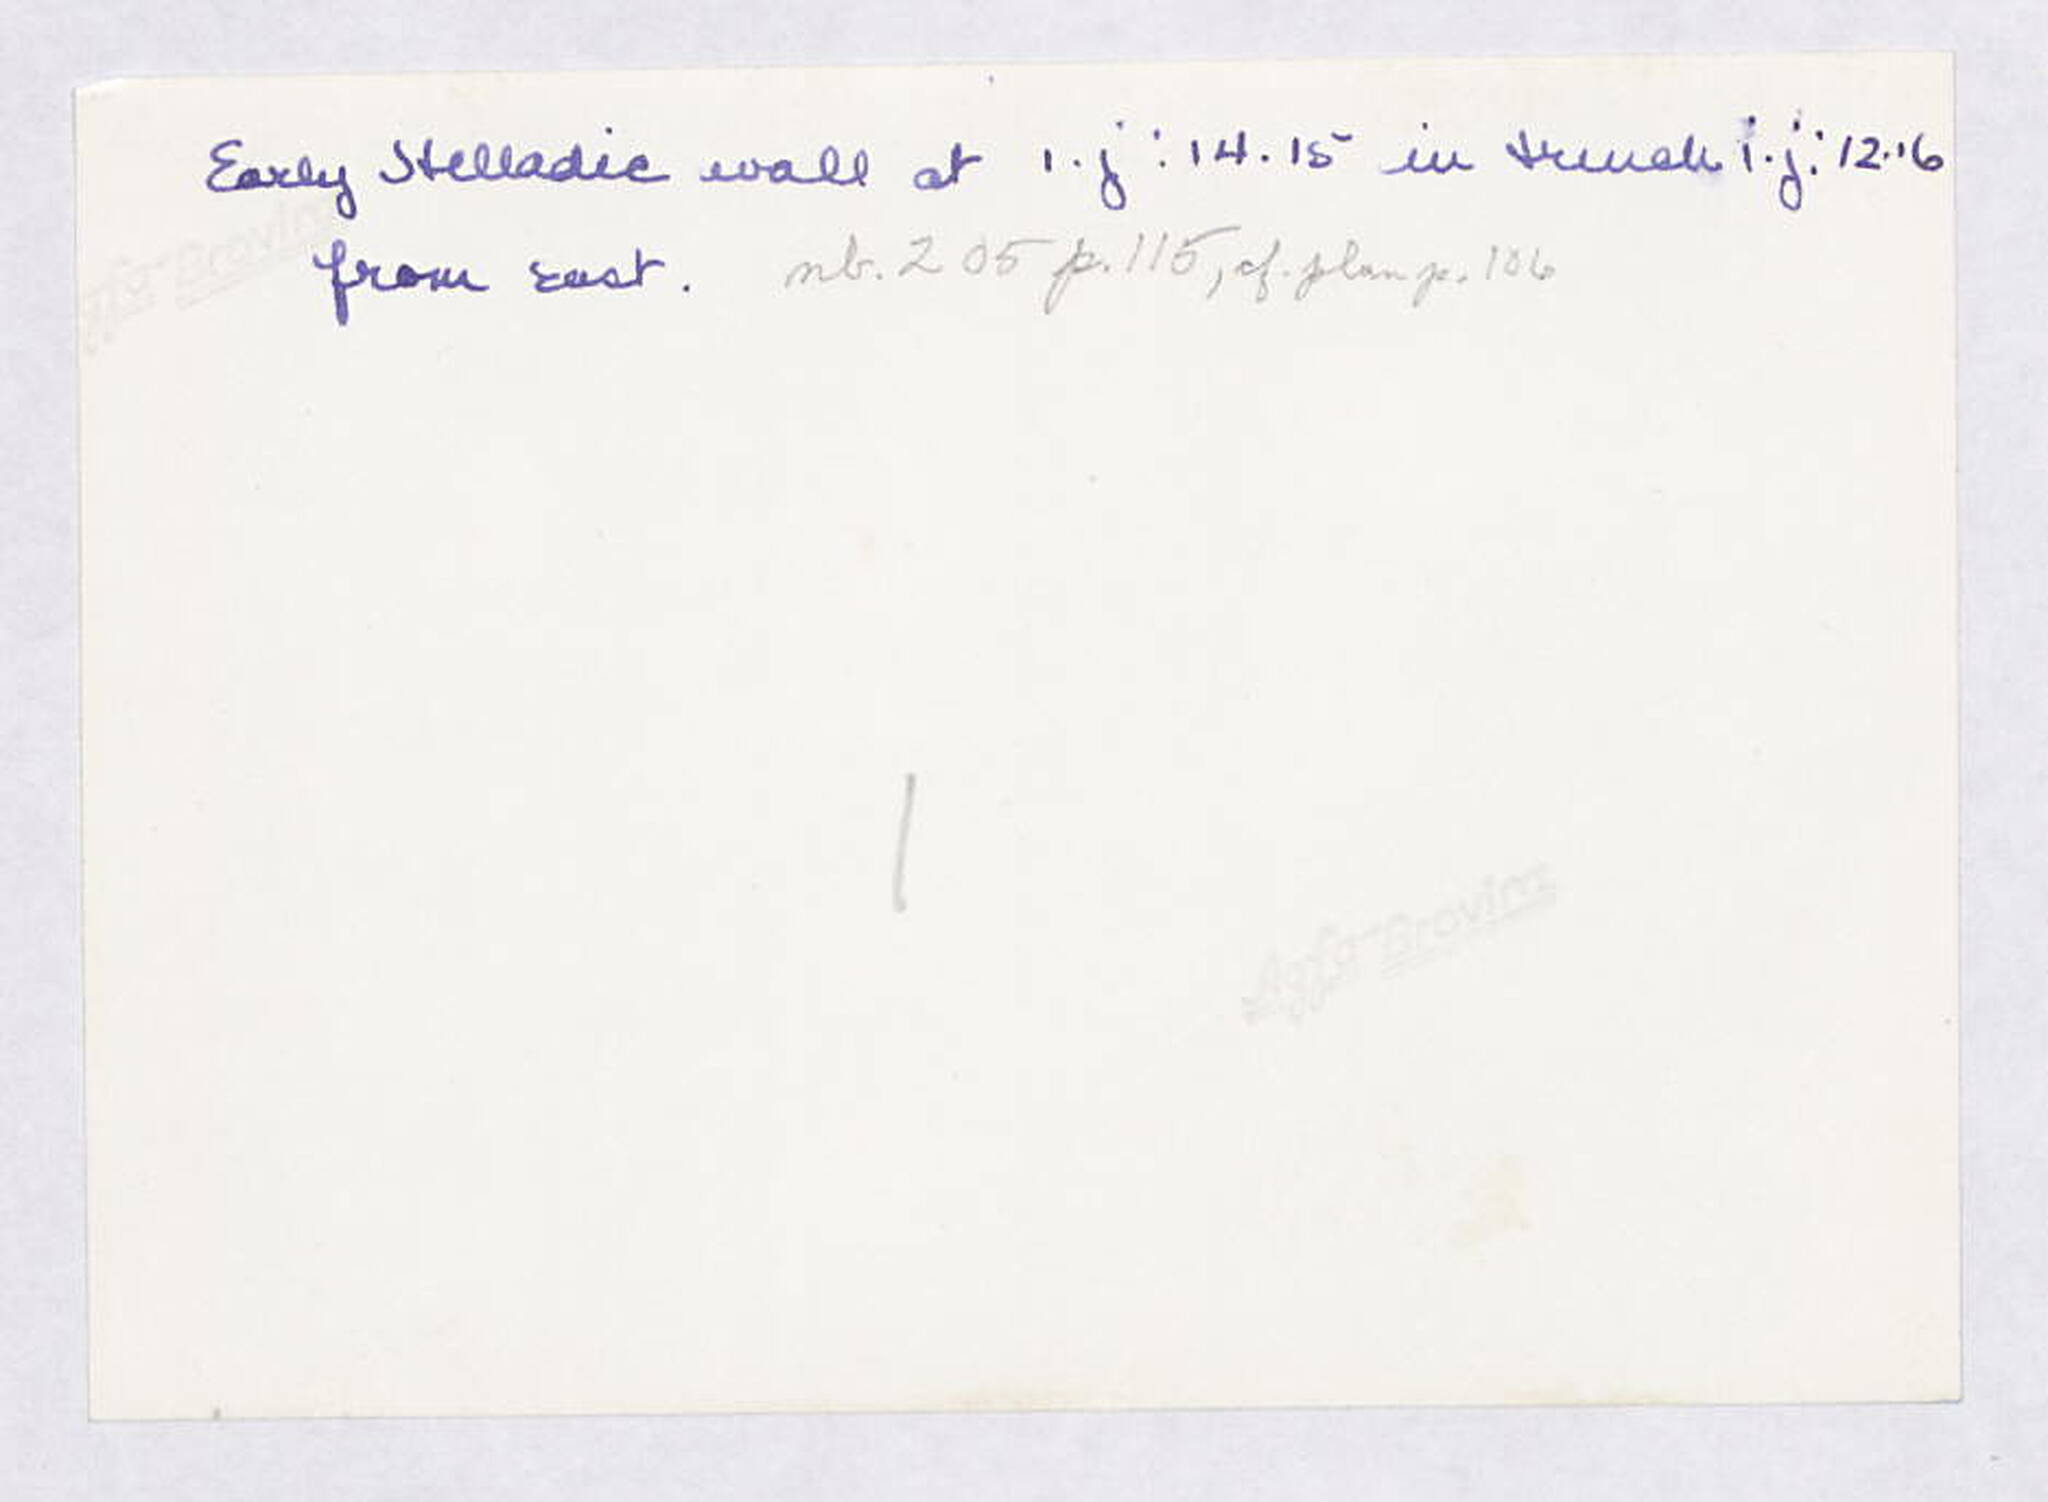 Early Helladic wall at i.j : 14.15 in trench i.j : 12.16
from east. nb. 205 p. 115, cf. plan p. 106
Agfa-Brovira
Agfa-Brovira